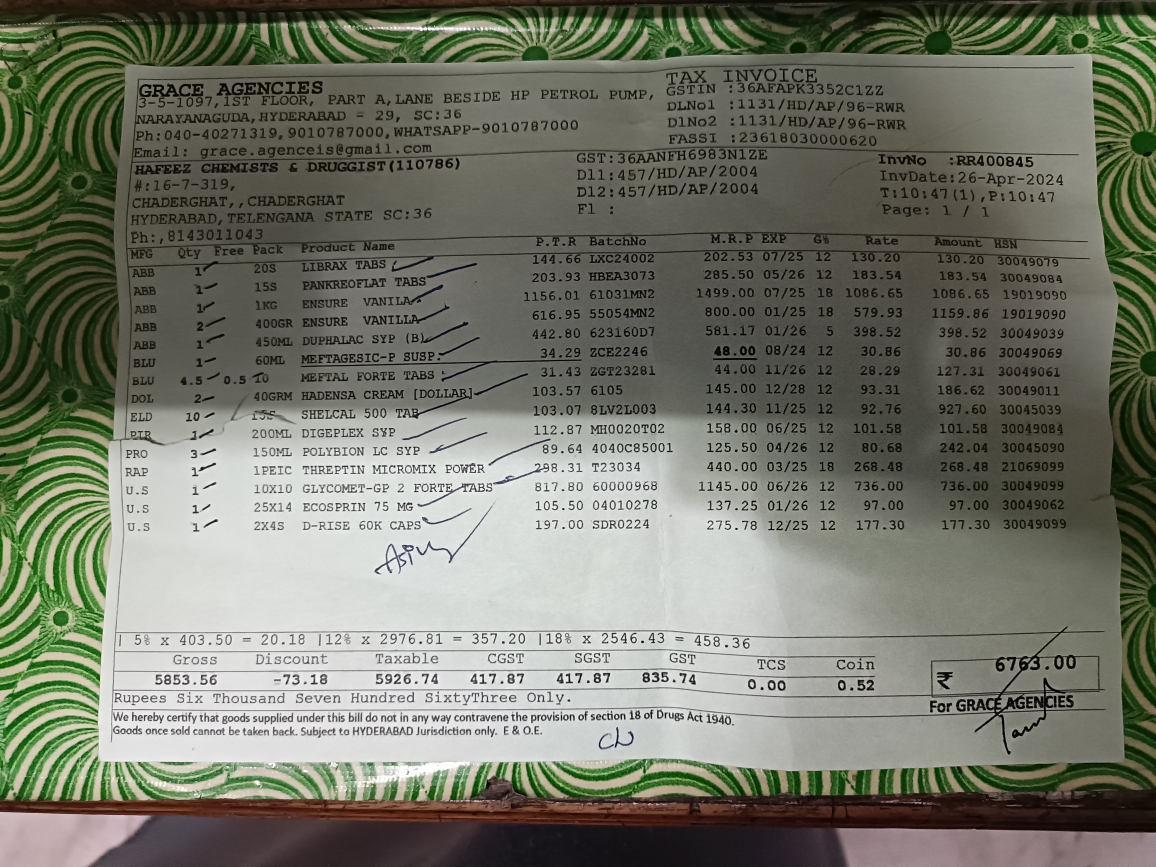 GRACE AGENCIES
3-5-1097,1ST FLOOR, PART A,LANE BESIDE HP PETROL PUMP,
NARAYANAGUDA,HYDERABAD = 29, SC:36
Ph:040-40271319,9010787000,WHATSAPP-9010787000
Email: grace.agenceis@gmail.com
TAX INVOICE
GSTIN :36AFAPK3352C1ZZ
DLNo1 :1131/HD/AP/96-RWR
DlNo2 :1131/HD/AP/96-RWR
FASSI :23618030000620
HAFEEZ CHEMISTS & DRUGGIST(110786)
#:16-7-319,
CHADERGHAT,,CHADERGHAT
HYDERABAD,TELENGANA STATE SC:36
Ph:,8143011043
GST:36AANFH6983N1ZE
Dl1:457/HD/AP/2004
Dl2:457/HD/AP/2004
Fl :
InvNo :RR400845
InvDate:26-Apr-2024
T:10:47(1),P:10:47
Page: 1 / 1
MFG Qty Free Pack Product Name P.T.R BatchNo M.R.P EXP G% Rate Amount HSN
ABB 1 20S LIBRAX TABS 144.66 LXC24002 202.53 07/25 12 130.20 130.20 30049079
ABB 1 15S PANKREOFLAT TABS 203.93 HBEA3073 285.50 05/26 12 183.54 183.54 30049084
ABB 1 1KG ENSURE VANILA 1156.01 61031MN2 1499.00 07/25 18 1086.65 1086.65 19019090
ABB 2 400GR ENSURE VANILLA 616.95 55054MN2 800.00 01/25 18 579.93 1159.86 19019090
ABB 1 450ML DUPHALAC SYP (B) 442.80 623160D7 581.17 01/26 5 398.52 398.52 30049039
BLU 1 60ML MEFTAGESIC-P SUSP. 34.29 ZCE2246 48.00 08/24 12 30.86 30.86 30049069
BLU 4.5 0.5 10 MEFTAL FORTE TABS 31.43 ZGT23281 44.00 11/26 12 28.29 127.31 30049061
DOL 2 40GRM HADENSA CREAM [DOLLAR] 103.57 6105 145.00 12/28 12 93.31 186.62 30049011
ELD 10 15S SHELCAL 500 TAB 103.07 8LV2L003 144.30 11/25 12 92.76 927.60 30045039
PIR 1 200ML DIGEPLEX SYP 112.87 MH0020T02 158.00 06/25 12 101.58 101.58 30049084
PRO 3 150ML POLYBION LC SYP 89.64 4040C85001 125.50 04/26 12 80.68 242.04 30045090
RAP 1 1PEIC THREPTIN MICROMIX POWER 298.31 T23034 440.00 03/25 18 268.48 268.48 21069099
U.S 1 10X10 GLYCOMET-GP 2 FORTE TABS 817.80 60000968 1145.00 06/26 12 736.00 736.00 30049099
U.S 1 25X14 ECOSPRIN 75 MG 105.50 04010278 137.25 01/26 12 97.00 97.00 30049062
U.S 1 2X4S D-RISE 60K CAPS 197.00 SDR0224 275.78 12/25 12 177.30 177.30 30049099
| 5% x 403.50 = 20.18 |12% x 2976.81 = 357.20 |18% x 2546.43 = 458.36
Gross Discount Taxable CGST SGST GST TCS Coin
5853.56 -73.18 5926.74 417.87 417.87 835.74 0.00 0.52
₹ 6763.00
Rupees Six Thousand Seven Hundred SixtyThree Only.
For GRACE AGENCIES
We hereby certify that goods supplied under this bill do not in any way contravene the provision of section 18 of Drugs Act 1940.
Goods once sold cannot be taken back. Subject to HYDERABAD Jurisdiction only. E & O.E.